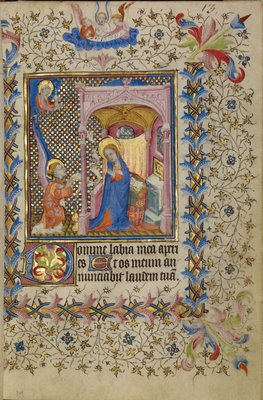 Domine labia mea aperi
es Et os meum an
nunciabit laudem tuā.